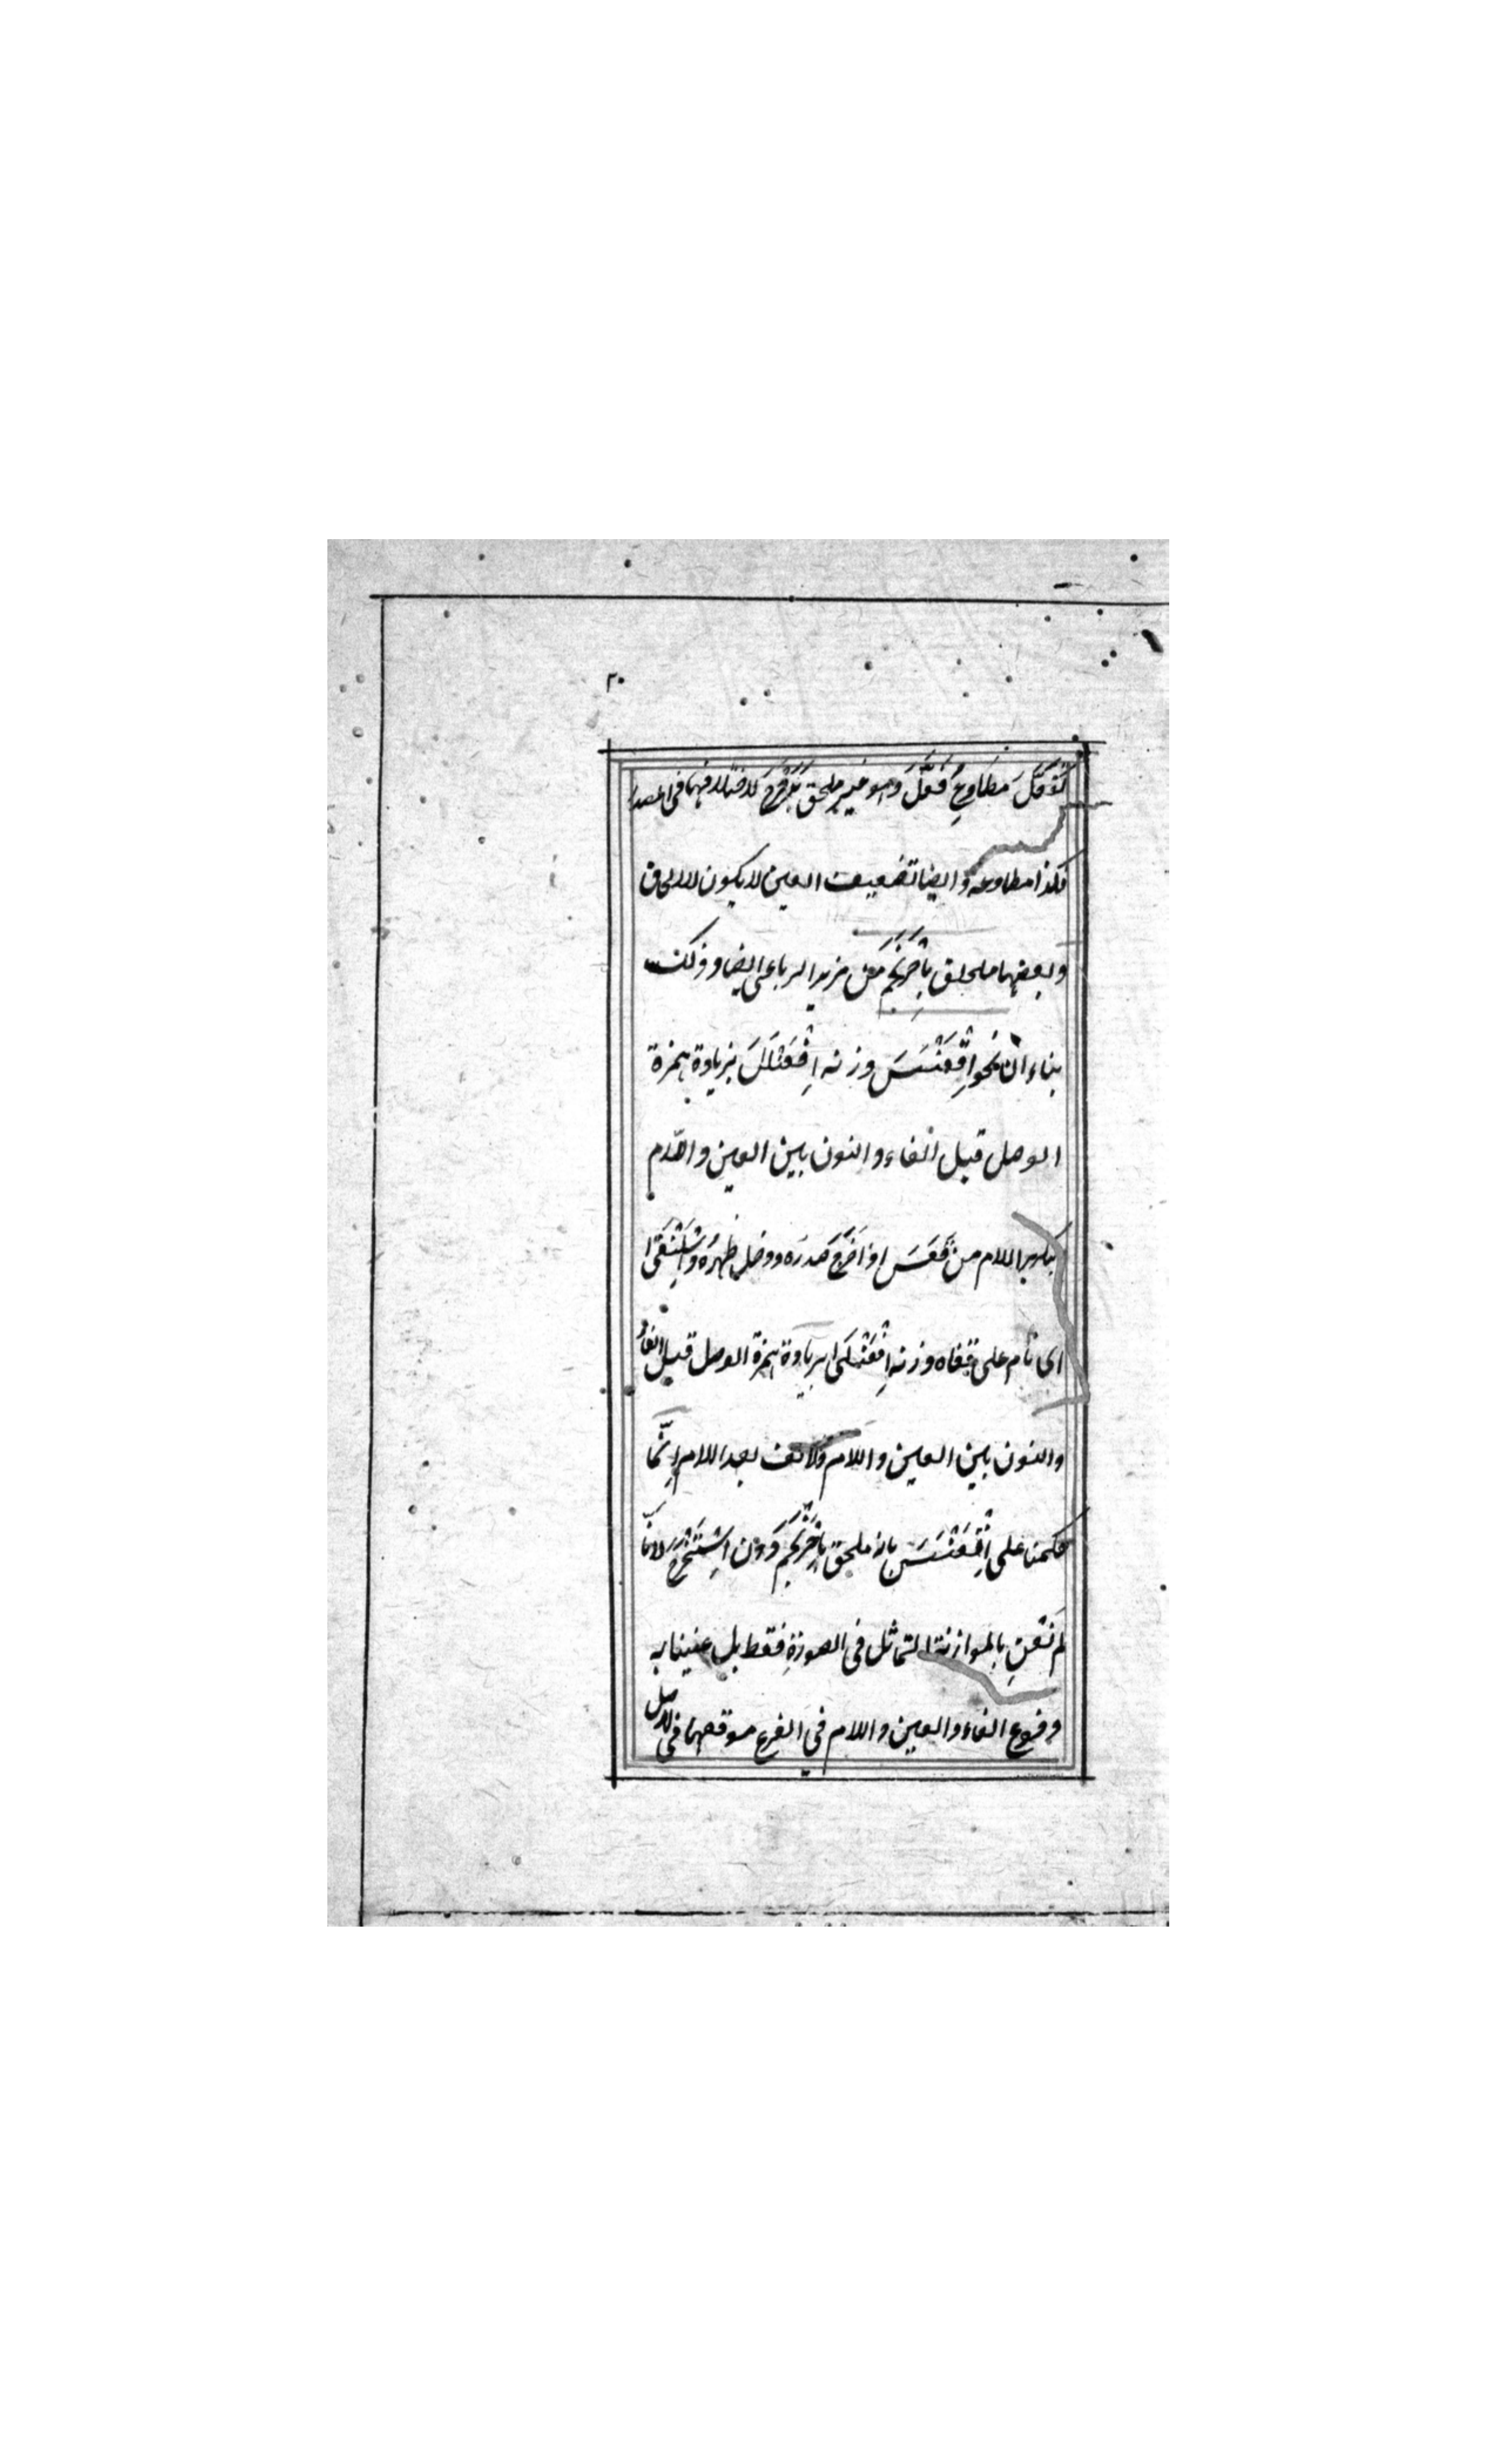 ٢٠
تَفَعَّلَ مطاوِعِ فَعَّلَ وهو غير ملحق بِدَحْرَجَ لاختلافهما فى المصدر
فكذا مطاوعه وايضا تضعيف العين لا يكون للالحاق
وبعضها ملحق باحْرَنْجَمَ من مزيد الرباعى ايضا وذلك
بناء ان نحو اِقْعَنْسَسَ وزنه اِفْعَنْلَلَ بزيادة همزة
الوصل قبل الفاء والنون بين العين واللام
بتكرير اللام من قَعَسَ اذا اخْرَجَ صَدرَه ودخل ظهرُه واسْلَنْقَى
اى نام على قفاه وزنه اِفْعَنْلَى بزيادة همزة الوصل قبل الفاء
والنون بين العين واللام والالف بعد اللام انّما
حكمنا على اِقْعَنْسَسَ بانه ملحق باحْرَنْجَمَ دون اسْتَخْرَجَ لانّا
لم نَعْنِ بالموازنة التماثل فى الصورة فقط بل عنينا به
وقوع الفاء والعين واللام فى الفرع موقعها فى الاصل